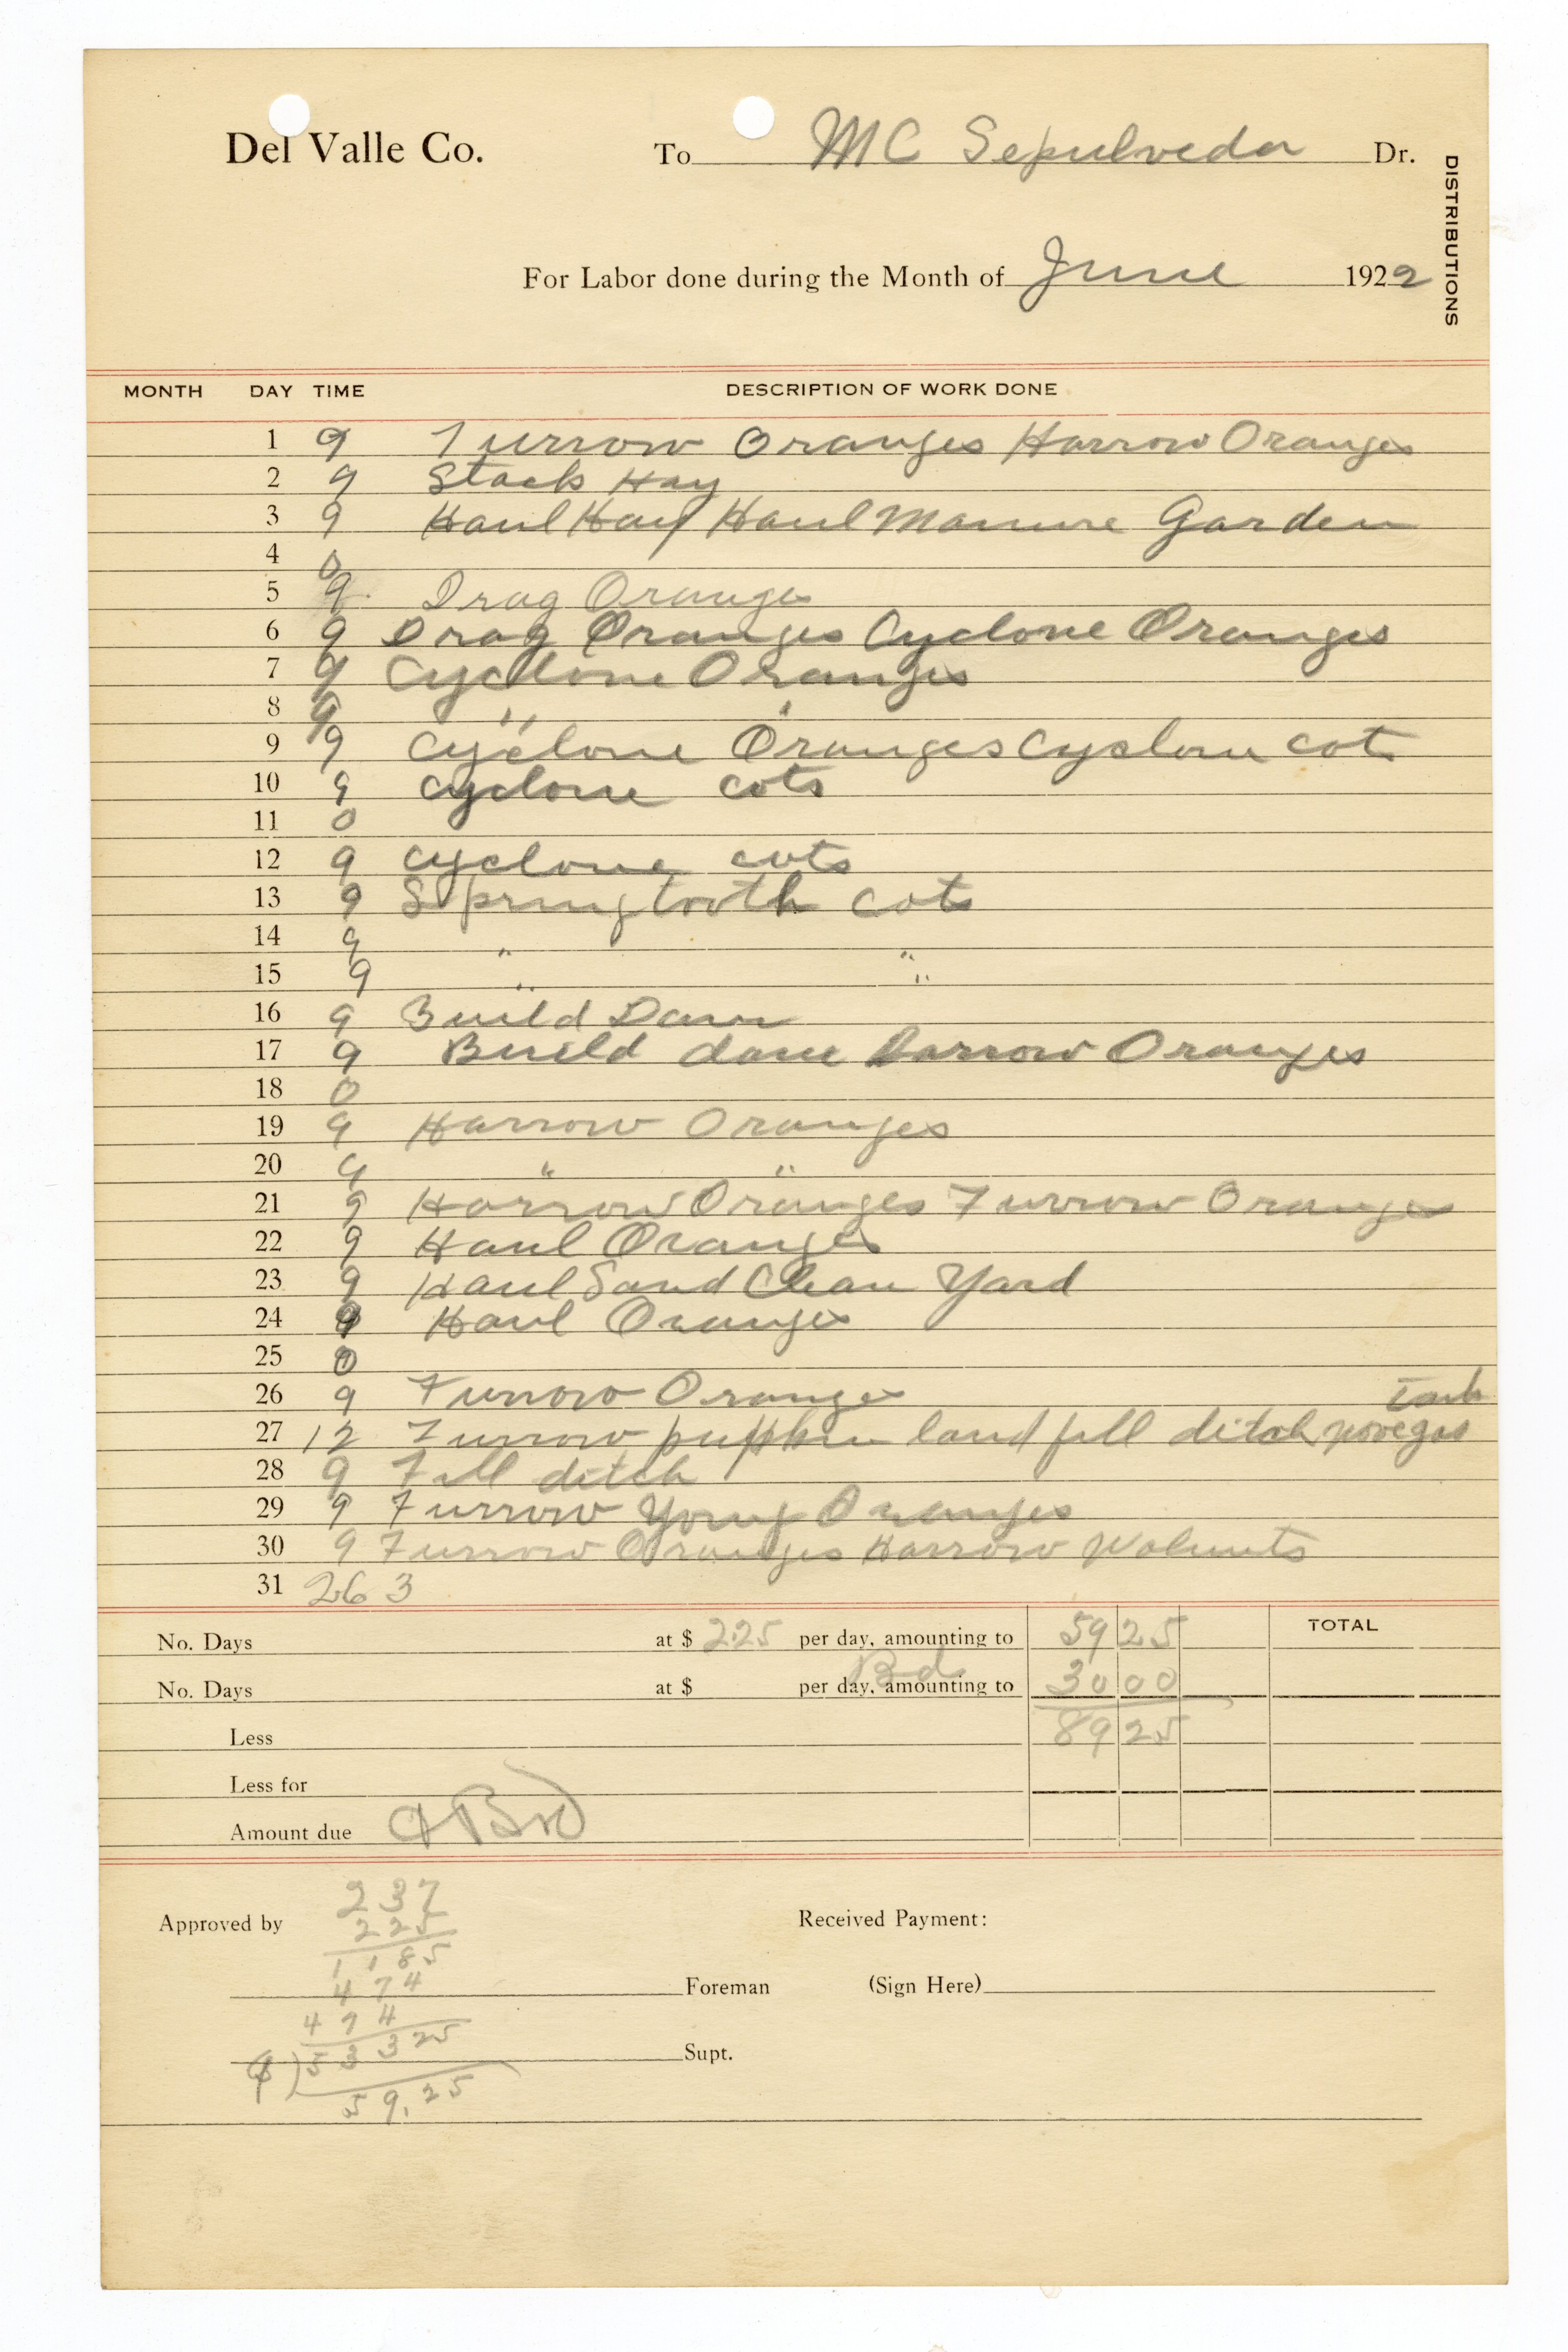 Del Valle Co. To MC Sepulveda Dr.
DISTRIBUTIONS
For Labor done during the Month of June 1922
MONTH DAY TIME DESCRIPTION OF WORK DONE
1 9 Furrow Oranges Harrow Oranges
2 9 Stack Hay
3 9 Haul Hay Haul Manure Garden
4 0
5 9 Drag Oranges
6 9 Drag Oranges Cyclone Oranges
7 9 Cyclone Oranges
8 9 " "
9 9 Cyclone Oranges Cyclone cots
10 9 Cyclone cots
11 0
12 9 cyclone cots
13 9 Springtooth Cots
14 9 " "
15 9 " "
16 9 Build Dam
17 9 Build dam Harrow Oranges
18 0
19 9 Harrow Oranges
20 9 " "
21 9 Harrow Oranges Furrow Oranges
22 9 Haul Oranges
23 9 Haul Sand Clean Yard
24 9 Haul Oranges
25 0
26 9 Furrow Oranges
tank
27 12 Furrow land fill ditch move gas
28 9 Fill ditch
29 9 Furrow Young Oranges
30 9 Furrow Oranges Harrow Walnuts
31 26 3
No. Days at $ 2.25 per day, amounting to 59 25 TOTAL
Bd
No. Days at $ per day, amounting to 30 00
Less 89 25
Less for
Amount due
237
Approved by 225 Received Payment:
1185
474 Foreman (Sign Here)
474
9 ) 53325 Supt.
59.25